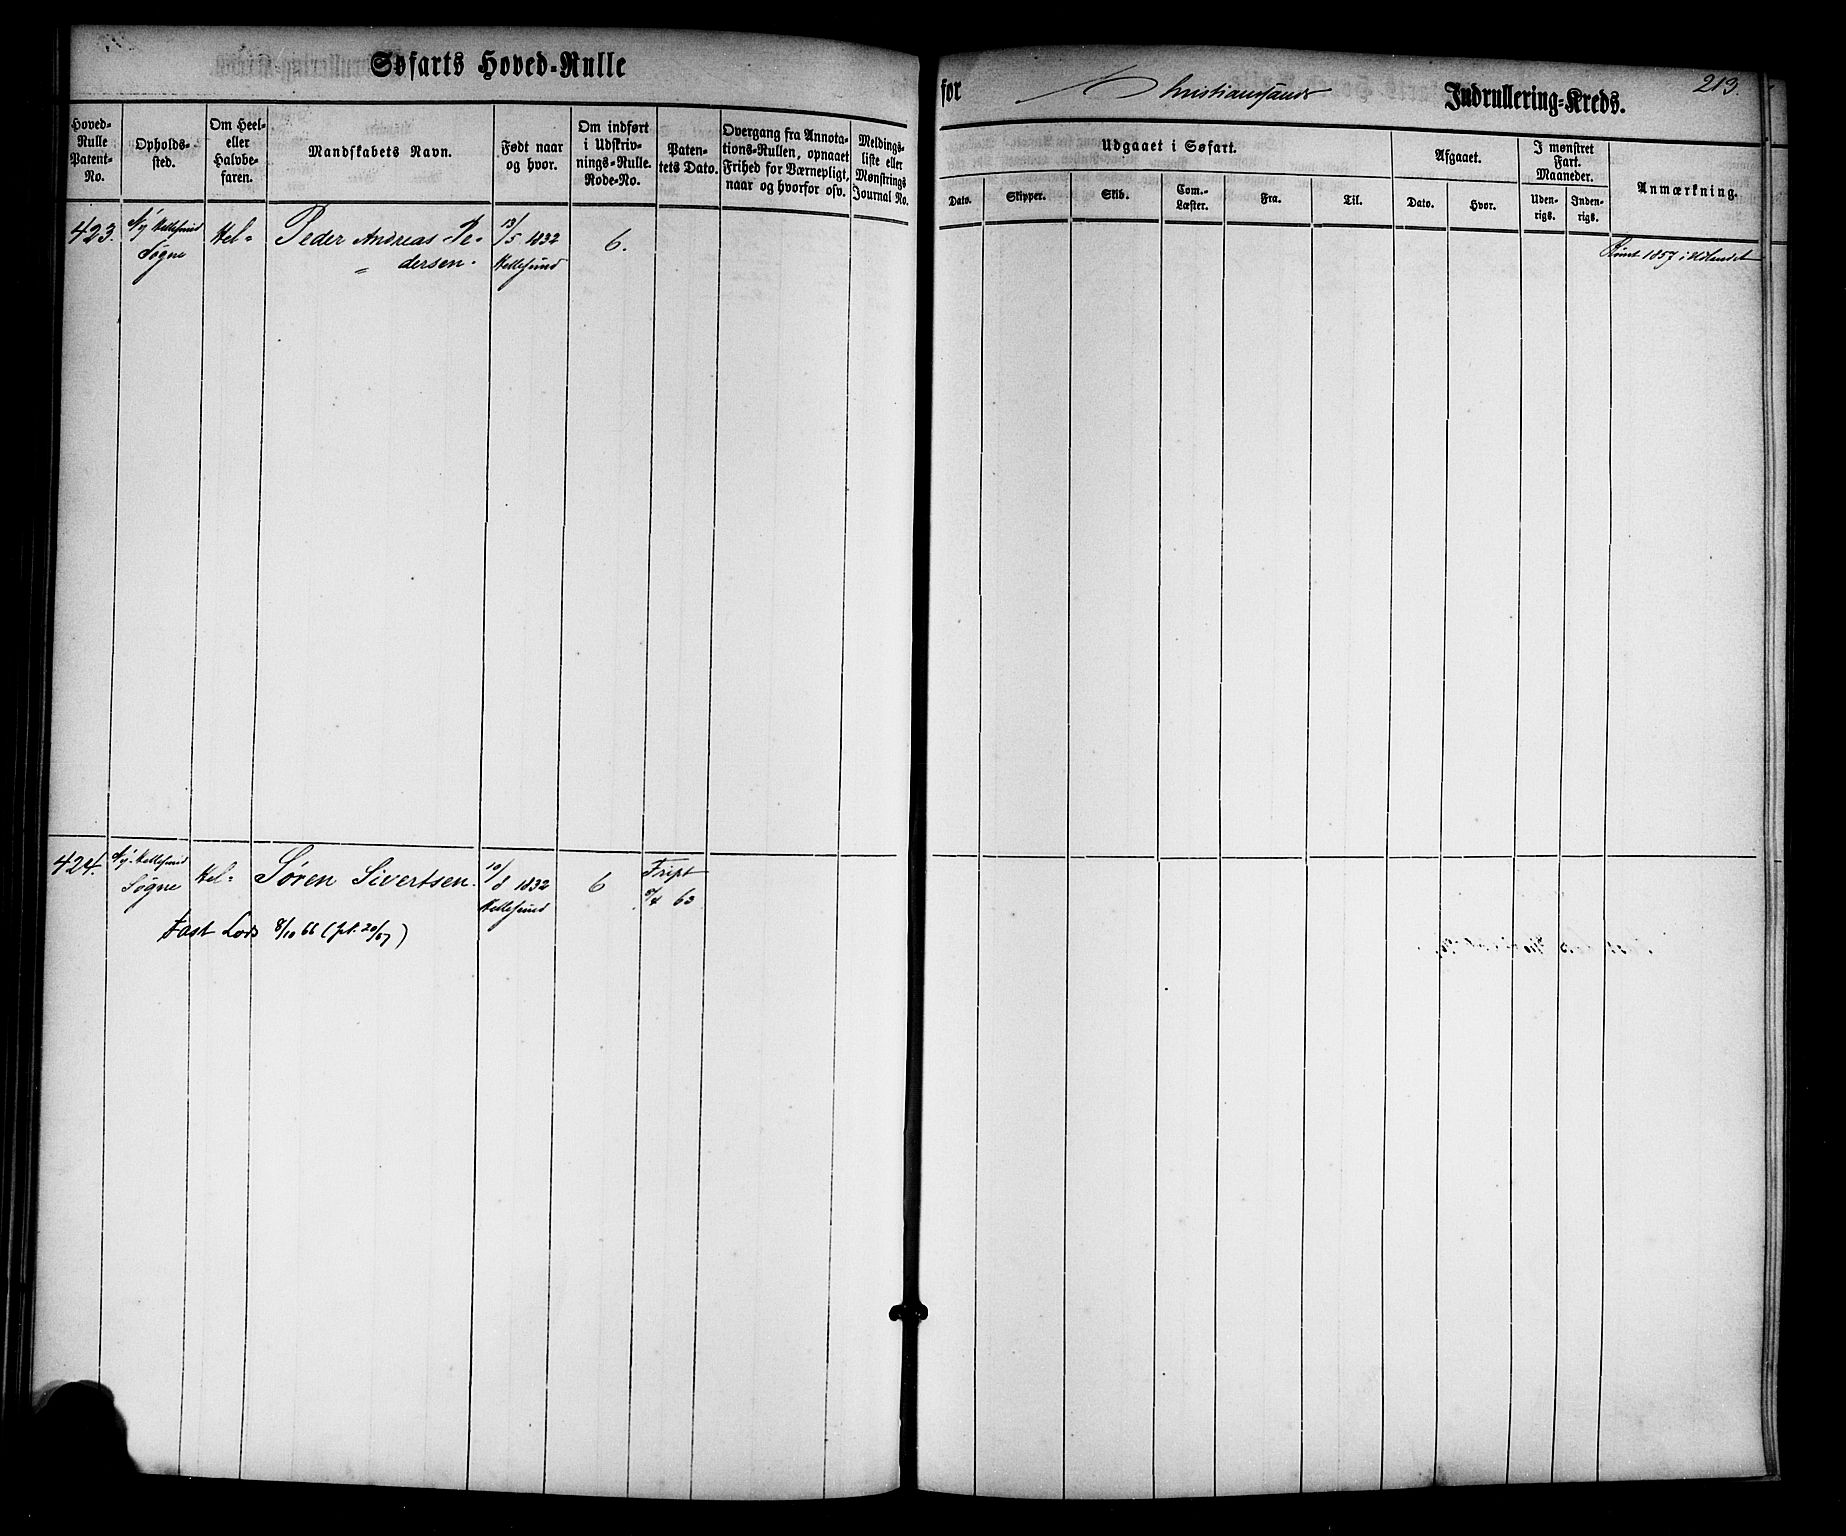 Søfarts Hoved-Rulle
for Christianssands Indrullering-Kreds.
213.
Hoved-
Rulle
Patent-
No.
Opholds-
sted.
Om Heel-
eller
Halvbe-
faren.
Mandskabets Navn.
Født naar
og hvor.
Om indført
i Udskriv-
nings-Rulle.
Rode-No.
Paten-
tets Dato.
Overgang fra Annota-
tions-Rullen, opnaaet
Frihed for Værnepligt,
naar og hvorfor osv.
Meldings-
liste eller
Mønstrings
Journal No.
Udgaaet i Søfart.
Dato.
Skipper.
Skib.
Com.-
Læster.
Fra.
Til.
Afgaaet.
Dato.
Hvor.
I mønstret
Fart.
Maaneder.
Uden-
rigs.
Inden-
rigs.
Anmærkning.
423.
Ny Hellesund
Søgne
Hel-
Peder Andreas Pe-
dersen.
13/5 1832
Hellesund
6.
Rømt 1857 i Udlandet
424.
Ny-Hellesund
Søgne
Hel-
Søren Sivertsen.
10/8 1832
Hellesund
6
63
Fast Lods 8/10 66 (pt. 20/67)